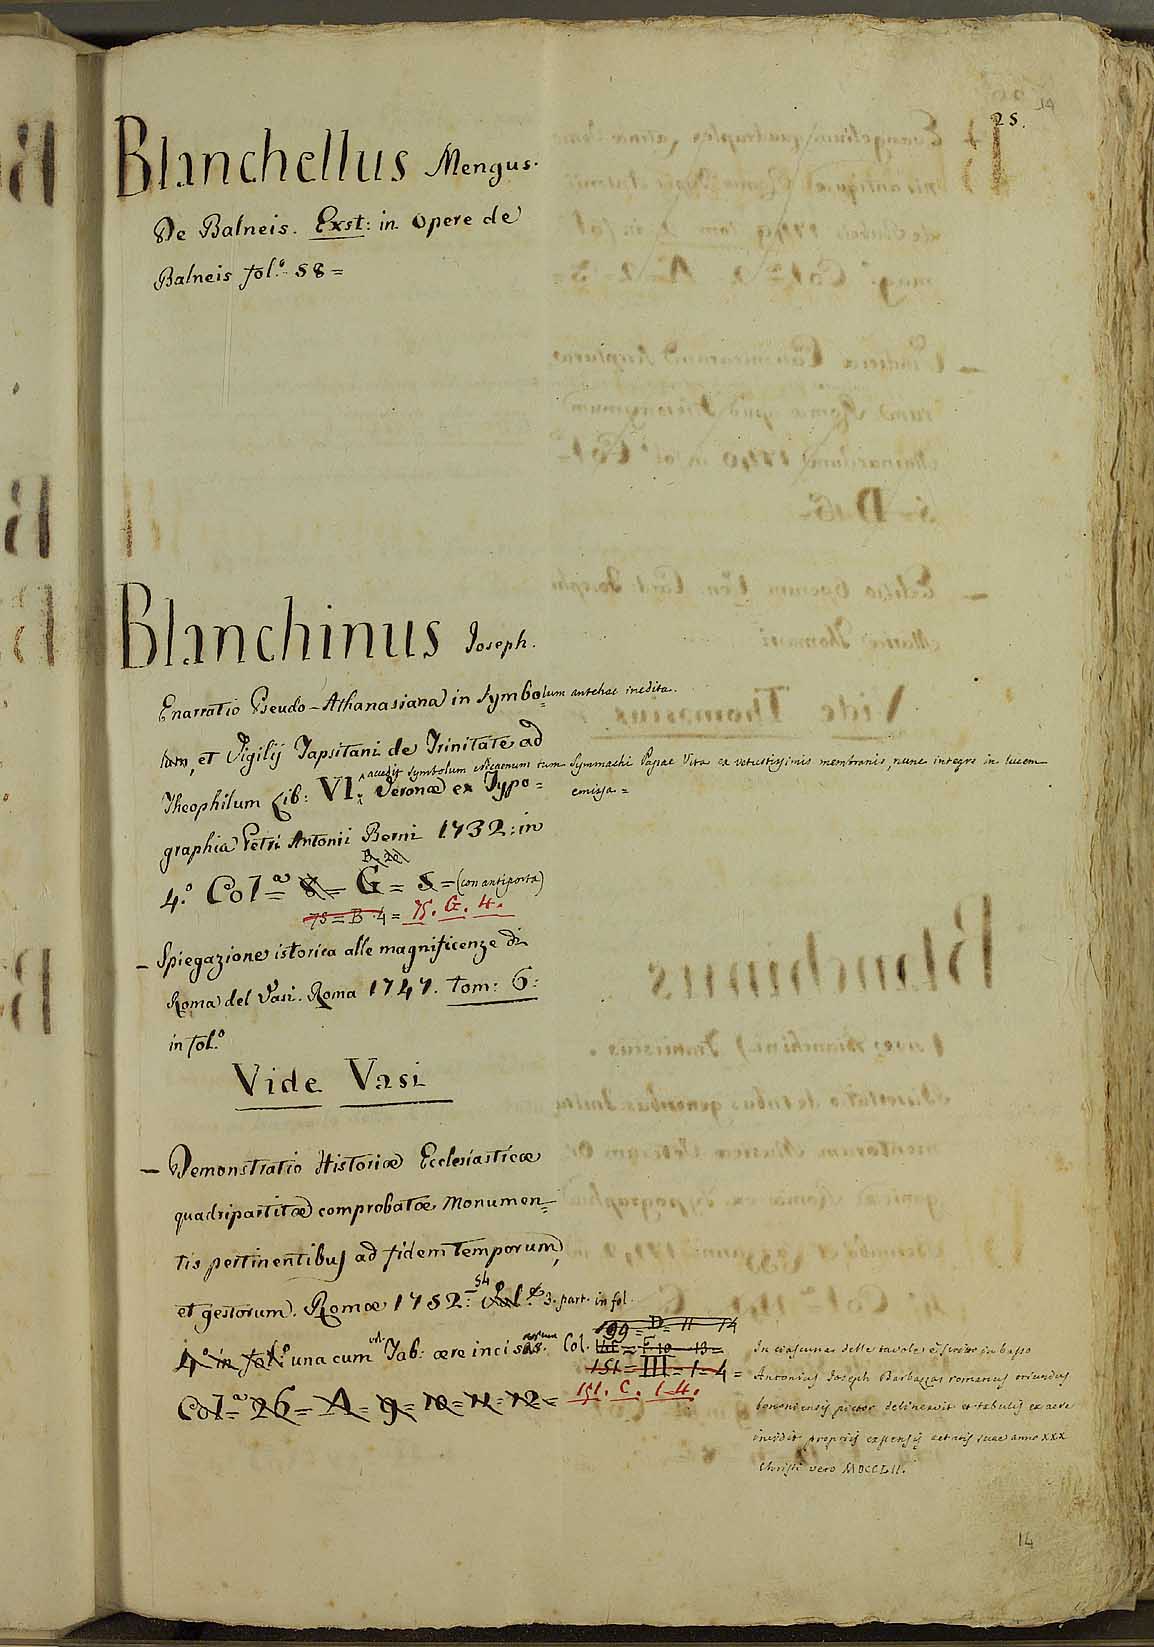 14
25.
Blanchellus Mengus.
De Balneis. Exst: in Opere de
Balneis fol.º 58=
Blanchinus Joseph.
Enarratio Pseudo-Athanasiana in Symbolum antehac inedita.
lum, et Vigilij Tapsitani de Trinitate ad
accedit symbolum Nicaenum cum Symmachi Papae Vita ex vetustissimis membranis, nunc integre in lucem
emissa=
Theophilum Lib: VI: Veronæ ex Typo=
graphia Petri Antonii Berni 1732: in
B. 20
4.º Col=ª 8= G= 5= (con antiporta)
75=B.4= 75. G. 4.
— Spiegazione istorica alle magnificenze di
Roma del Vasi. Roma 1747. tom: 6:
in fol.º
Vide Vasi
— Demonstratio Historiæ Ecclesiasticæ
quadripartitæ comprobatæ Monumen=
tis pertinentibus ad fidem temporum,
et gestorum. Romæ 1752: 3. part. in fol.
4.º in fol.º una cum Tab: ære incisas. Col.
199=D= 11 14
151=III=1=4=
151. C. 1-4.
Col=ª 26= A= 9= 10= 11= 12=
In ciascuna delle tavole è scritto in basso
Antonius Joseph Barbazza romanus oriundus
bononiensis pictor delineavit et tabulis ex aere
incidit propriis expensis aetatis suae anno XXX
Christi vero MDCCLII.
14